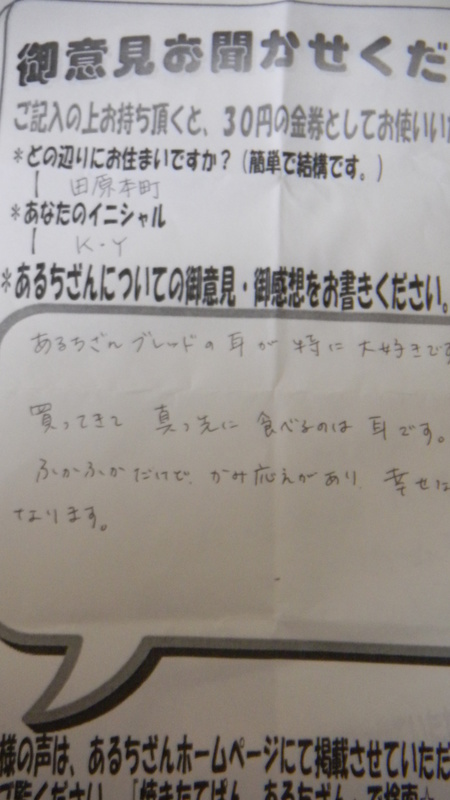 御意見お聞かせくだ
ご記入の上お持ち頂くと、30円の金券としてお使いいた
*どの辺りにお住まいですか?(簡単で結構です。)
田原本町
*あなたのイニシャル
K-Y
*あるちざんについての御意見・御感想をお書きください。
あるちざんブレッドの耳が特に大好きです
買ってきて 真っ先に食べるのは耳です。
ふかふかだけど、かみ応えがあり、幸せな
なります。
様の声は、あるちざんホームページにて掲載させていただ
ご覧ください。「焼きたてぱん あるちざん」で検索☆